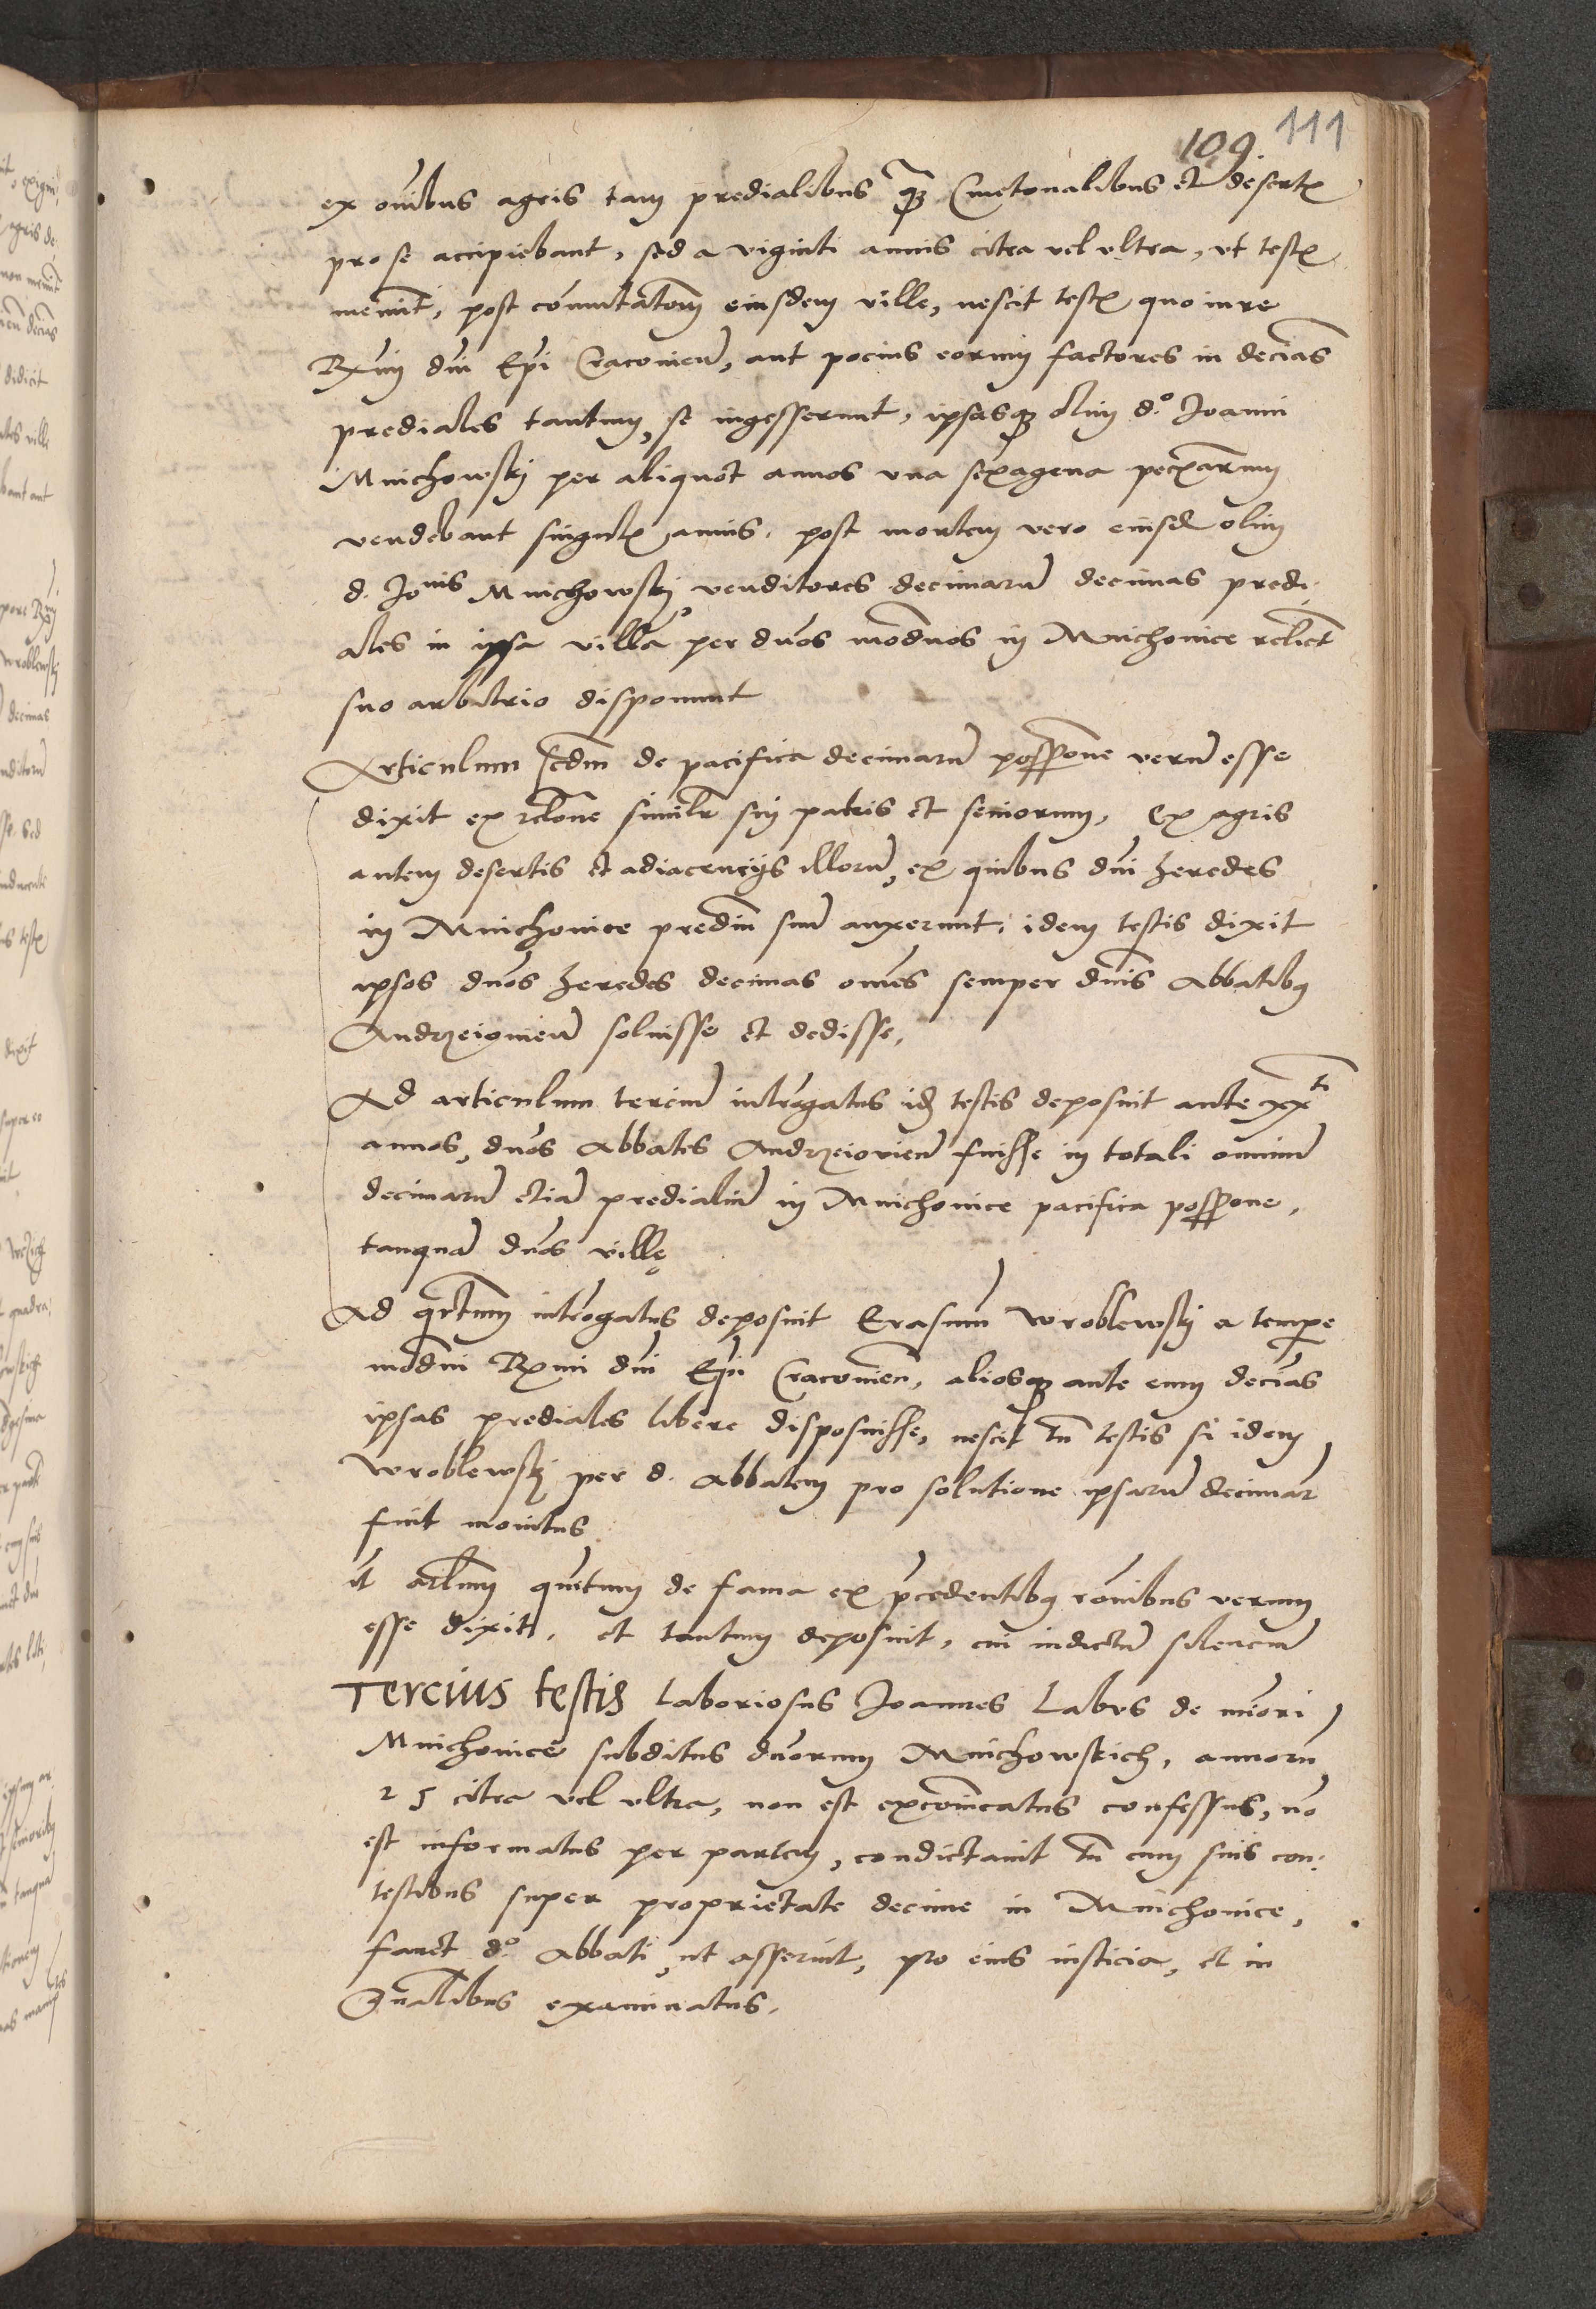 109. 111
ex oībus agris tam predialibus q̃ꝫ Cmetonalibus et desertꝭ
pro se accipiebant, sed a viginti annis citra vel vltra, vt testꝭ
meminit, post cōmutatōem eiusdem ville, nescit testꝭ quo iure
Rxmi dn̄i Ep̄i Cracovien̄, aut pocius eorum factores in decīas
prediales tantum se ingesserunt, ipsasqꝫ olim d.º Joanni
Mnichowskj per aliquot annos vna sexagena
vendebant singulꝭ annis. post mortem vero eiusd̄ olim
d. Joānis Mnichowskj venditores decimarū decimas predi-
ales in ipsa villa per dn̄os modn̄os in Mnichovice relict̄
suo arbitrio disponunt
Articulum sc̄dm de pacifica decimarū possessōne verū esse
dixit ex rel̄one simil̄r sui patris et seniorum, Ex agris
autem desertis et adiacencijs illorū, ex quibus dn̄i heredes
in Mnichovice prediū suū auxerunt, idem testis dixit
ipsos dn̄os heredes decimas om̄es semper dn̄is Abbatibꝫ
Andrzeiovien̄ soluisse et dedisse.
Ad articulum terciū intérrogatus id̄ testis deposuit ante xxti
annos, dn̄os Abbates Andrzeiovien̄ fuisse in totali omniū
decimarū etiā predialiū in Mnichovice pacifica possessōne,
tanquā dn̄os villę
Ad qrtum intērogatus deposuit Erasmū Wroblewskj a tempe
modn̄i Rxmi dn̄i Ep̄i Cracovien̄, aliosqꝫ ante eum decīas
ipsas prediales libere disposuisse, nescit tn̄ testis si idem
Wroblewskj per d. Abbatem pro solutione ipsarū decimar̄
fuit monitus
It̄ art̄lum quītum de fama ex p̄cedentibꝫ rōnibus verum
esse dixit, et tantum deposuit, cui indictū silenciū
Tercius testis Laboriosus Joannes Labus de mīori
Mnichovice subditus dn̄orum Mnichowskich, annorū
25 citra vel vltra, non est excōīcatus confessus, nō
est informatus per partem, condictauit tn̄ cum suis con-
testibus super proprietate decime in Mnichovice,
fauet d.º Abbati vt asseruit, pro eius iusticia, et in
Gn̄alibus examinatus.